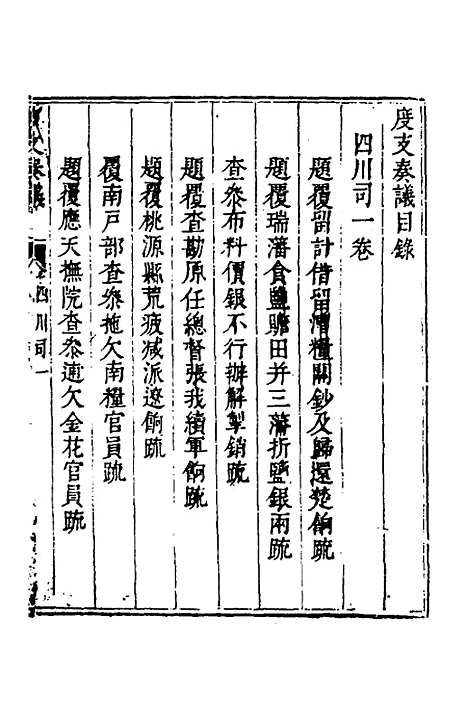 度支奏議目錄
四川司一卷
題覆留計借留漕糧關鈔及歸還楚餉疏
題覆瑞藩食鹽贍田并三藩折鹽銀兩疏
查叅布料價銀不行辦解掣銷疏
題覆查勘原任總督張我續軍餉疏
題覆桃源縣荒疲減派遼餉疏
覆南戶部查叅拖欠南糧官員疏
題覆應天撫院查叅逋欠金花官員疏
四川司一